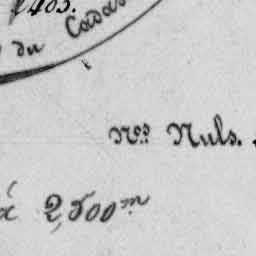 1403.
du Cadas
Nos. Nuls.
à 2,500 m